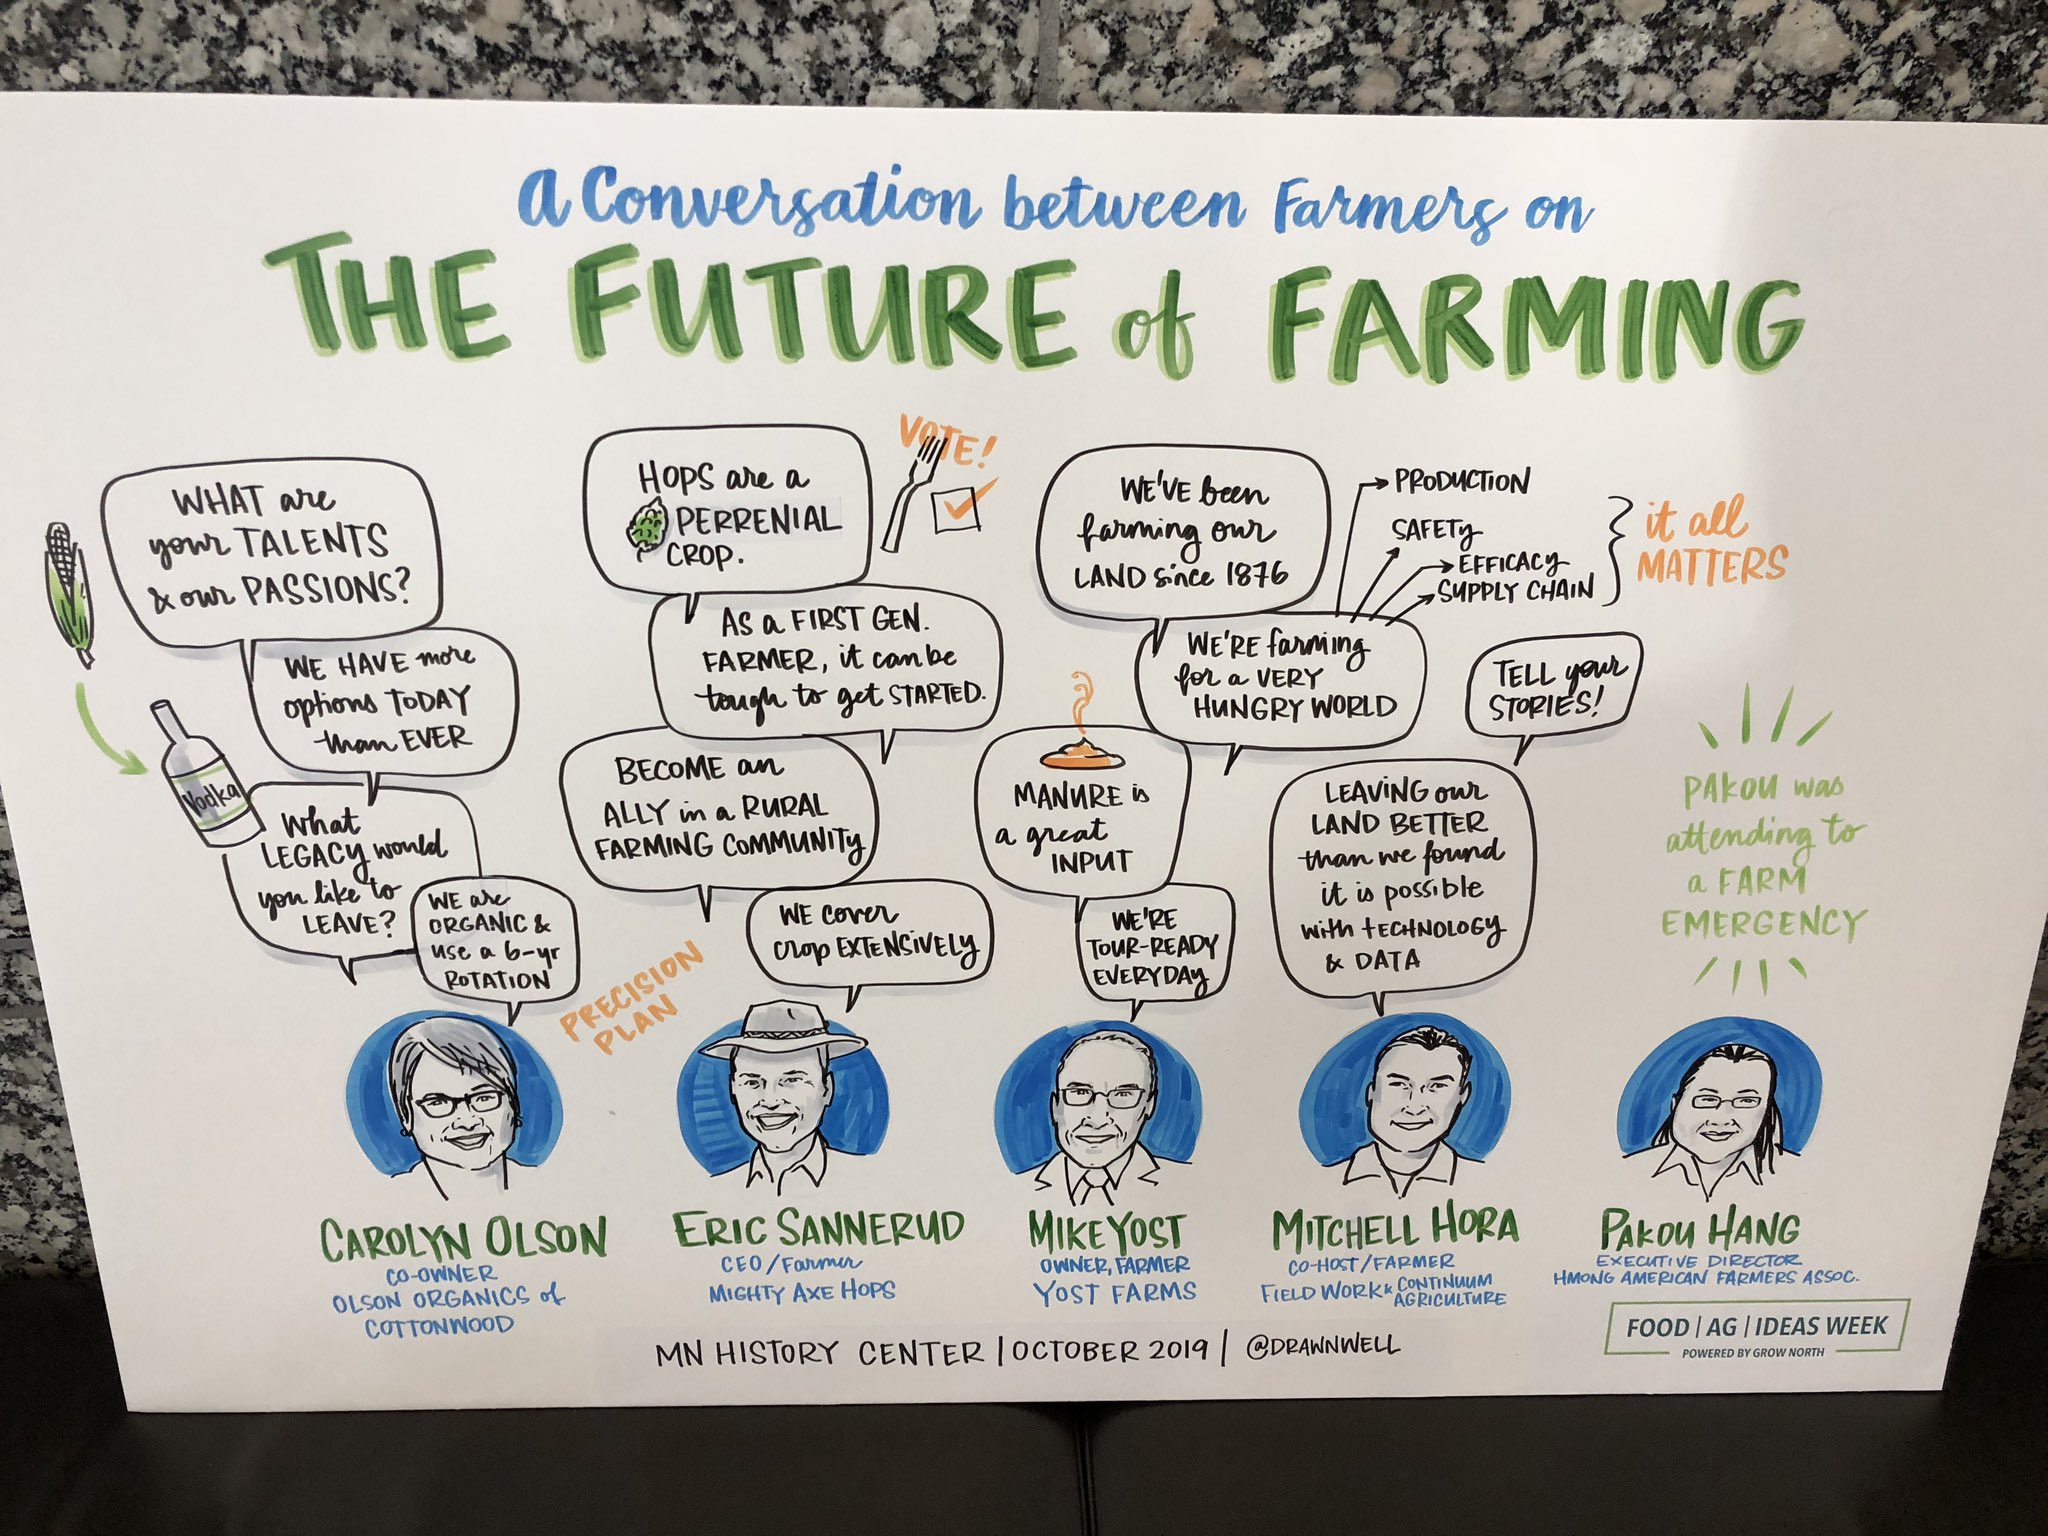 A Conversation between Farmers on
THE FUTURE of FARMING
WHAT are
your TALENTS
& our PASSIONS?
WE HAVE more
options TODAY
than EVER
Vodka
What
LEGACY would
you like to
LEAVE?
WE are
ORGANIC &
use a 6-yr
ROTATION
PRECISION
PLAN
HOPS are a
PERRENIAL
CROP.
VOTE!
AS a FIRST GEN.
FARMER, it can be
tough to get STARTED.
BECOME an
ALLY in a RURAL
FARMING COMMUNITY
WE cover
crop EXTENSIVELY
WE'VE been
farming our
LAND since 1876
WE'RE farming
for a VERY
HUNGRY WORLD
PRODUCTION
SAFETY
EFFICACY
SUPPLY CHAIN
it all
MATTERS
MANURE is
a great
INPUT
WE'RE
TOUR-READY
EVERYDAY
TELL your
STORIES!
LEAVING our
LAND BETTER
than we found
it is possible
with TECHNOLOGY
& DATA
PAKOU was
attending to
a FARM
EMERGENCY
CAROLYN OLSON
CO-OWNER
OLSON ORGANICS of
COTTONWOOD
ERIC SANNERUD
CEO/Farmer
MIGHTY AXE HOPS
MIKE YOST
OWNER, FARMER
YOST FARMS
MITCHELL HORA
CO-HOST/FARMER
FIELD WORK & CONTINUUM
AGRICULTURE
PAKOU HANG
EXECUTIVE DIRECTOR
HMONG AMERICAN FARMERS ASSOC.
MN HISTORY CENTER | OCTOBER 2019 | @DRAWNWELL
FOOD | AG | IDEAS WEEK
POWERED BY GROW NORTH